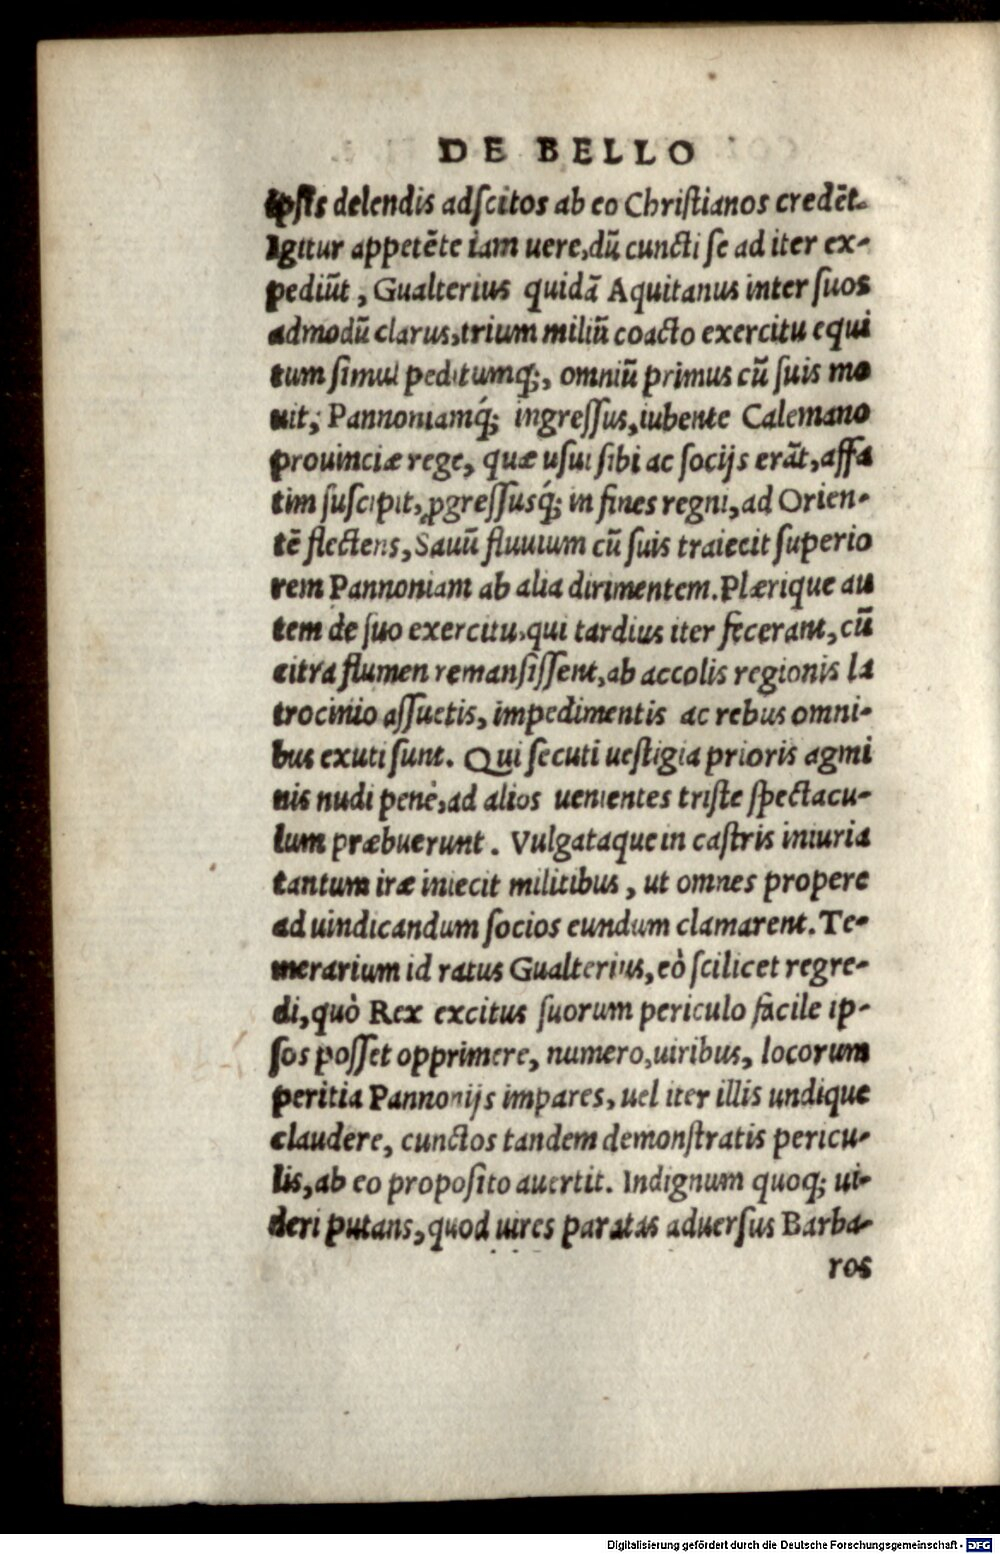 DE BELLO
ipsis delendis adſcitos ab eo Chriſtianos credēt.
Igitur appetēte iam uere, dū cuncti ſe ad iter ex-
pediūt, Gualterius quidā Aquitanus inter ſuos
admodū clarus, trium miliū coacto exercitu equi
tum ſimul peditumq;, omniū primus cū ſuis mo
uit, Pannoniamq́; ingreſſus, iubente Calemano
prouinciæ rege, quæ uſui ſibi ac ſocijs erāt, affa
tim ſuſcipit, ꝓgreſſusq́; in fines regni, ad Orien-
tē flectens, Sauū fluuium cū ſuis traiecit ſuperio
rem Pannoniam ab alia dirimentem. Plærique au
tem de ſuo exercitu, qui tardius iter fecerant, cū
citra flumen remanſiſſent, ab accolis regionis la
trocinio aſſuetis, impedimentis ac rebus omni-
bus exuti ſunt. Qui ſecuti ueſtigia prioris agmi
nis nudi penè, ad alios uenientes triſte ſpectacu-
lum præbuerunt. Vulgataque in caſtris iniuria
tantum iræ iniecit militibus, ut omnes propere
ad uindicandum ſocios eundum clamarent. Te-
merarium id ratus Gualterius, eò ſcilicet regre-
di, quò Rex excitus ſuorum periculo facile ip-
ſos poſſet opprimere, numero, uiribus, locorum
peritia Pannonijs impares, uel iter illis undique
claudere, cunctos tandem demonſtratis pericu-
lis, ab eo propoſito auertit. Indignum quoq; ui-
deri putans, quod uires paratas aduerſus Barba-
ros
Digitalisierung gefördert durch die Deutsche Forschungsgemeinschaft - DFG